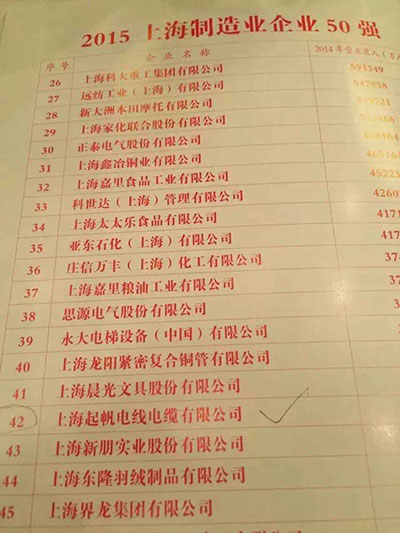 2015 上海制造业企业 50 强
序号 企业名称 2014年营业收入（万
26 上海科大重工集团有限公司 593349
27 远纺工业（上海）有限公司
28 新大洲本田摩托有限公司
29 上海家化联合股份有限公司
30 正泰电气股份有限公司
31 上海鑫冶铜业有限公司
32 上海嘉里食品工业有限公司 45223
33 科世达（上海）管理有限公司 42607
34 上海太太乐食品有限公司 4171
35 亚东石化（上海）有限公司 417
36 庄信万丰（上海）化工有限公司
37 上海嘉里粮油工业有限公司
38 思源电气股份有限公司
39 永大电梯设备（中国）有限公司
40 上海龙阳紧密复合铜管有限公司
41 上海晨光文具股份有限公司
42 上海起帆电线电缆有限公司
43 上海新朋实业股份有限公司
44 上海东隆羽绒制品有限公司
45 上海界龙集团有限公司